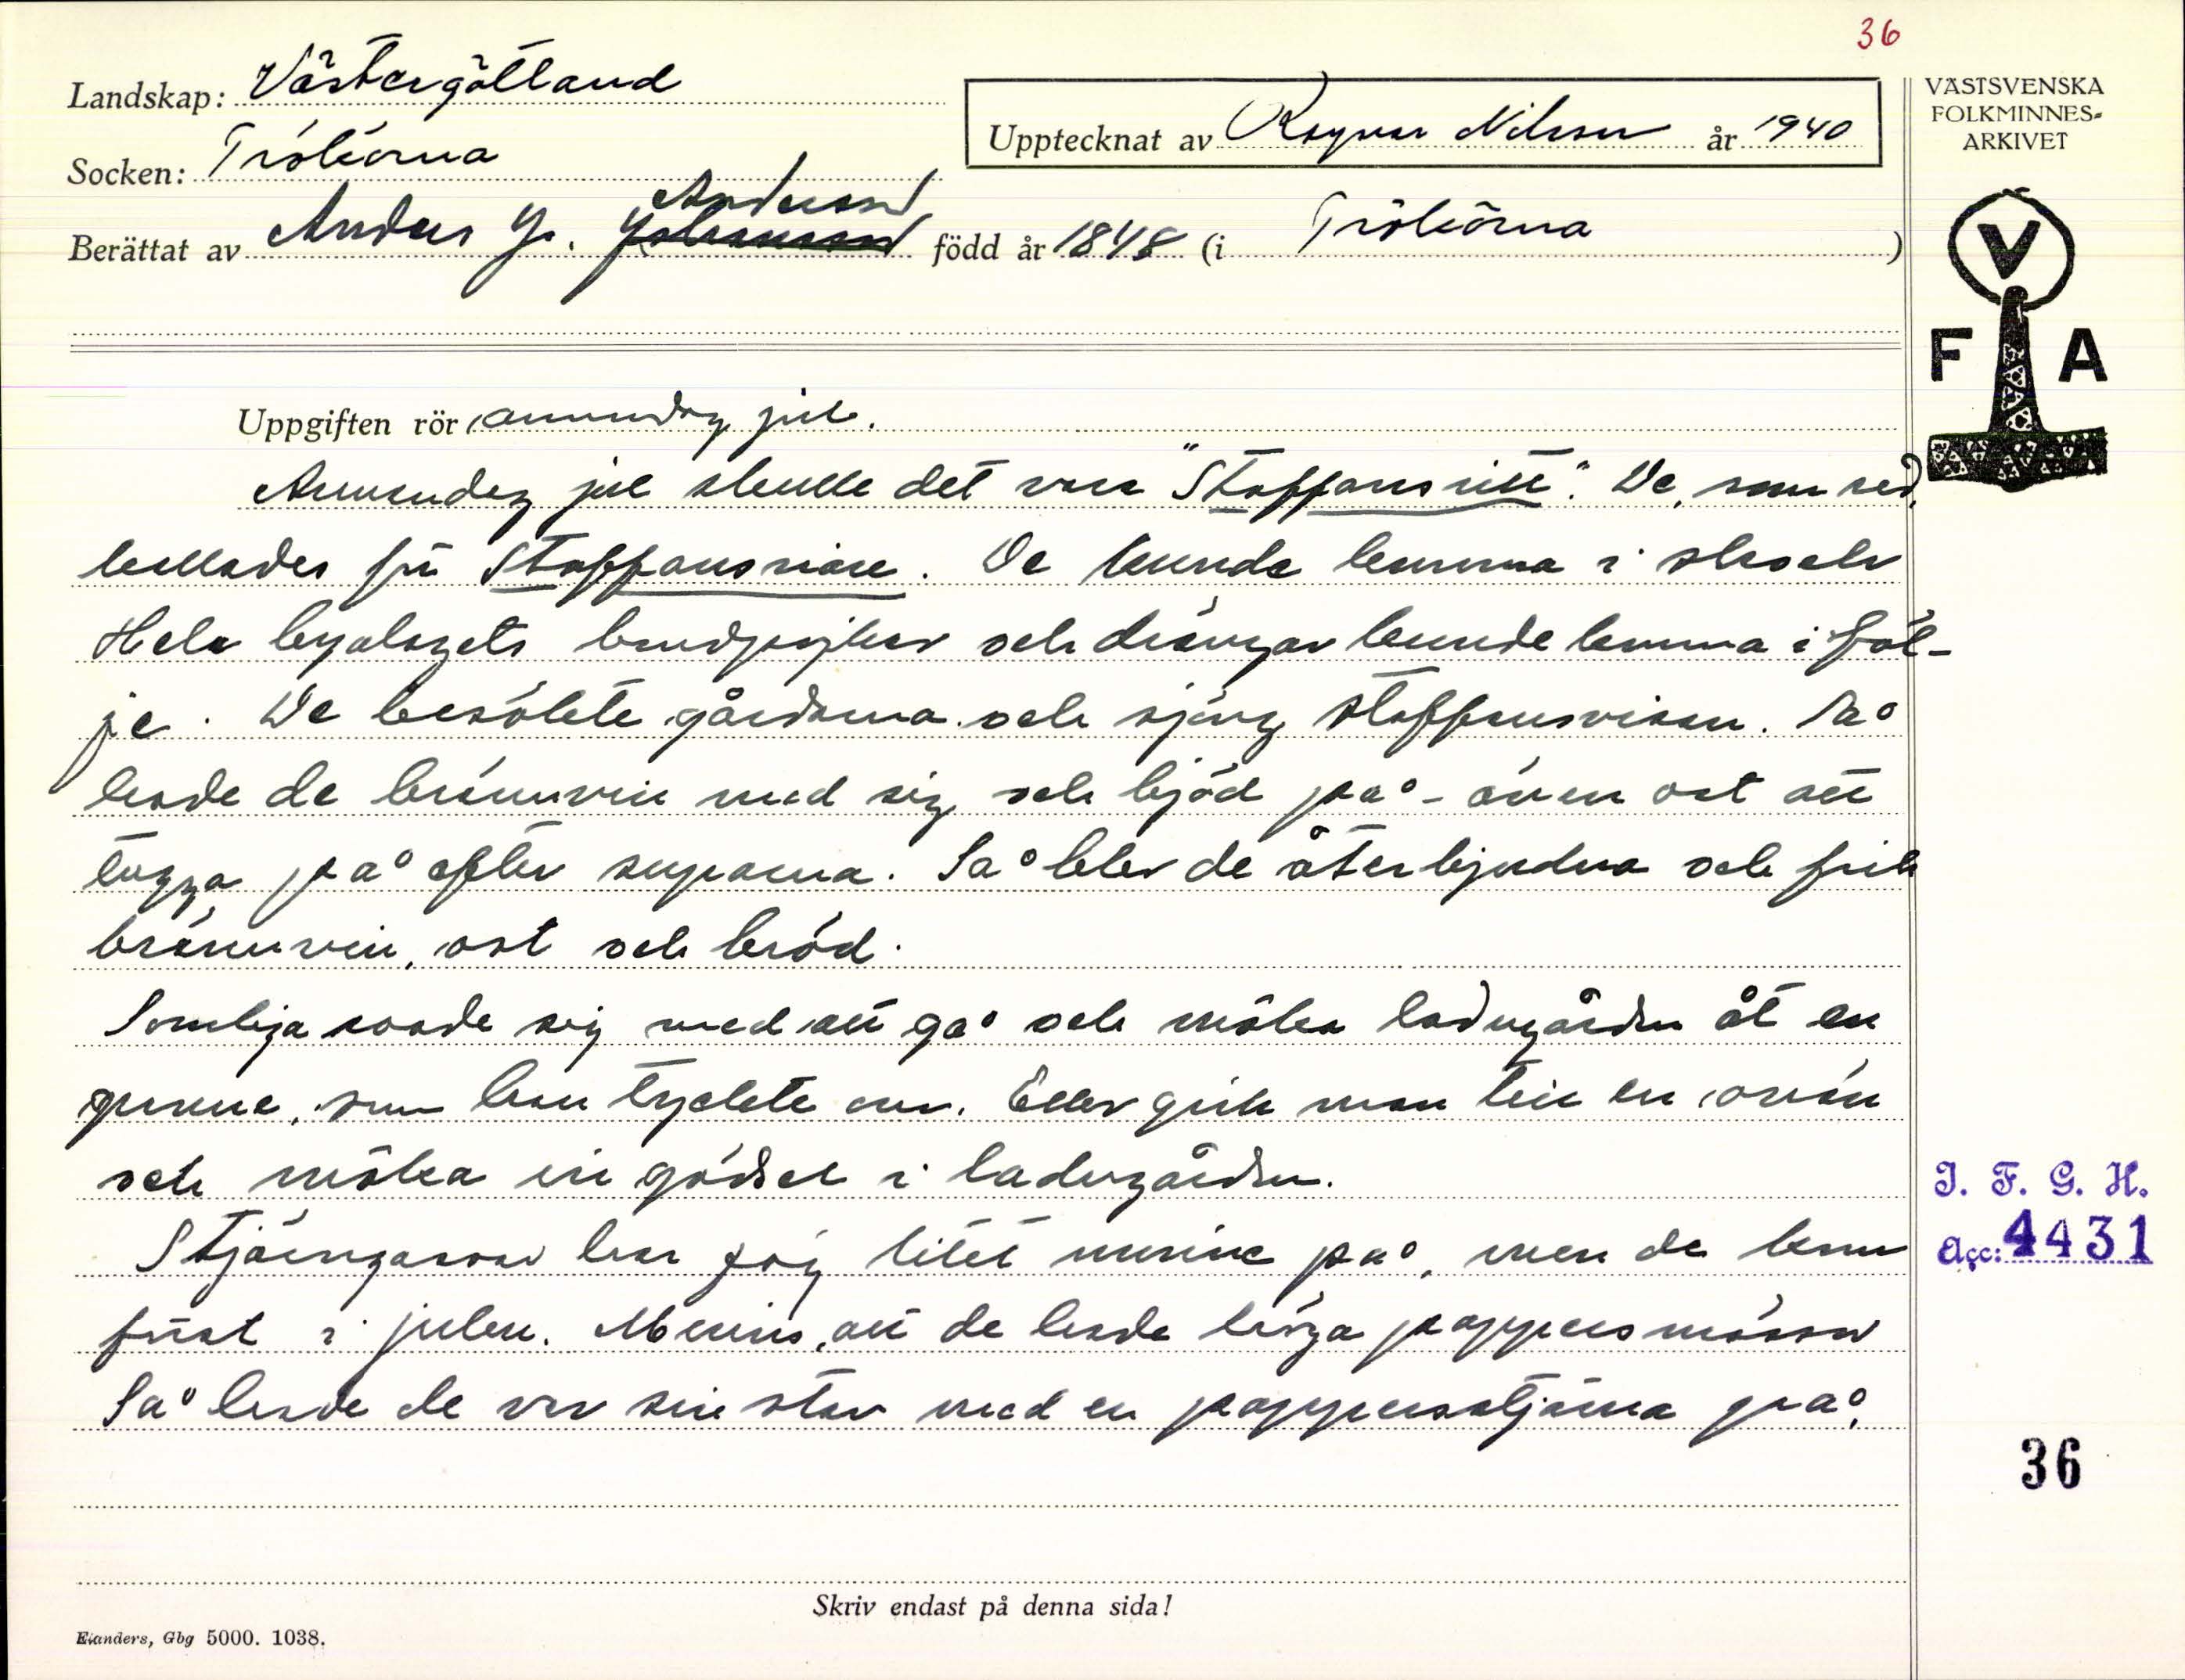 36
Landskap: Västergötland
VÄSTSVENSKA
FOLKMINNES-
ARKIVET
Upptecknat av Ragnar Nilsson år 1940
Socken: Trökörna
Andersson
Berättat av Anders J. Johansson född år 1848 (i Trökörna )
V
F A
Uppgiften rör annandag jul.
Annandag jul skulle det vara "Staffansritt". De, som red,
kallades för Staffansriare. De kunde komma i skock
Hela byalagets bondpojkar och drängar kunde komma i föl-
je. De besökte gårdarna och sjöng staffansvisan. Så
hade de brännvin med sig och bjöd på - även ost att
tugga på efter suparna. Så blev de återbjudna och fick
brännvin, ost och bröd.
Somliga roade sig med att gå och möka ladugården åt en
gumma, som han tyckte om. Eller gick man till en ovän
och möka in gödsel i ladugården.
Stjärngossar har jag litet minne på, men de kom
först i julen. Minns, att de hade höga pappersmössor
Så hade de var sin stav med en pappersstjärna på.
I. F. G. H.
Acc: 4431
36
Skriv endast på denna sida!
Elanders, Gbg 5000. 1038.